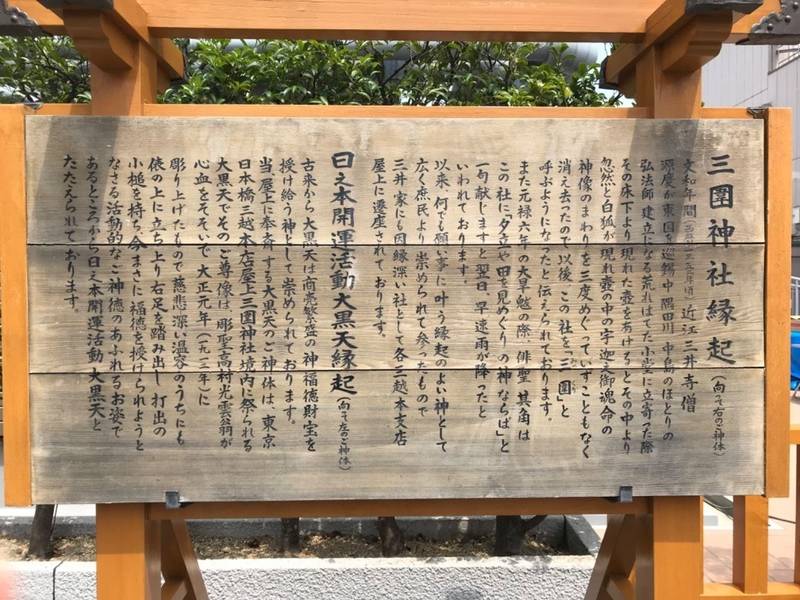 三圍神社縁起(向って右のご神体)
文和年間(西暦一三五二〜六頃)近江三井寺僧
源慶が東国を巡錫中 隅田川 中島のほとりの
弘法師 建立になる荒れはてた小堂に立寄った際
その床下より 現れた壺を 開けると その中より
忽然と白狐が 現れ 壺の中の宇迦之御魂命の
神像のまわりを三度めぐって いずこともなく
消え去ったので以後 この社を「三圍」と
呼ぶようになったと伝えられております。
また元禄六年の大旱魃の際 俳聖 其角は
この社に「夕立や田を見めぐりの神ならば」と
一句献じますと翌日 早速雨が降ったと
いわれております。
以来、何でも願い事に叶う縁起のよい神として
広く庶民より 崇められて参ったもので
三井家にも因縁深い社として各三越本支店
屋上に遷座されております。
日之本開運活動大黒天縁起(向って左のご神体)
古来から大黒天は商売繁盛の神福徳財宝を
授け給う神として崇められております。
当、屋上に奉斎する大黒天のご神体は、東京
日本橋三越本店屋上三圍神社境内に祭られる
大黒天でそのご尊像は、彫聖高村光雲翁が
心血をそそいで、大正元年(一九一二年)に
彫り上げたもので慈悲深い温容のうちにも
俵の上に立ち上り右足を踏み出し 打出の
小槌を持ち、今まさに福徳を授けられようと
なさる活動的なご神徳のあふれるお姿で
あるところから日之本開運活動大黒天と
たたえられております。